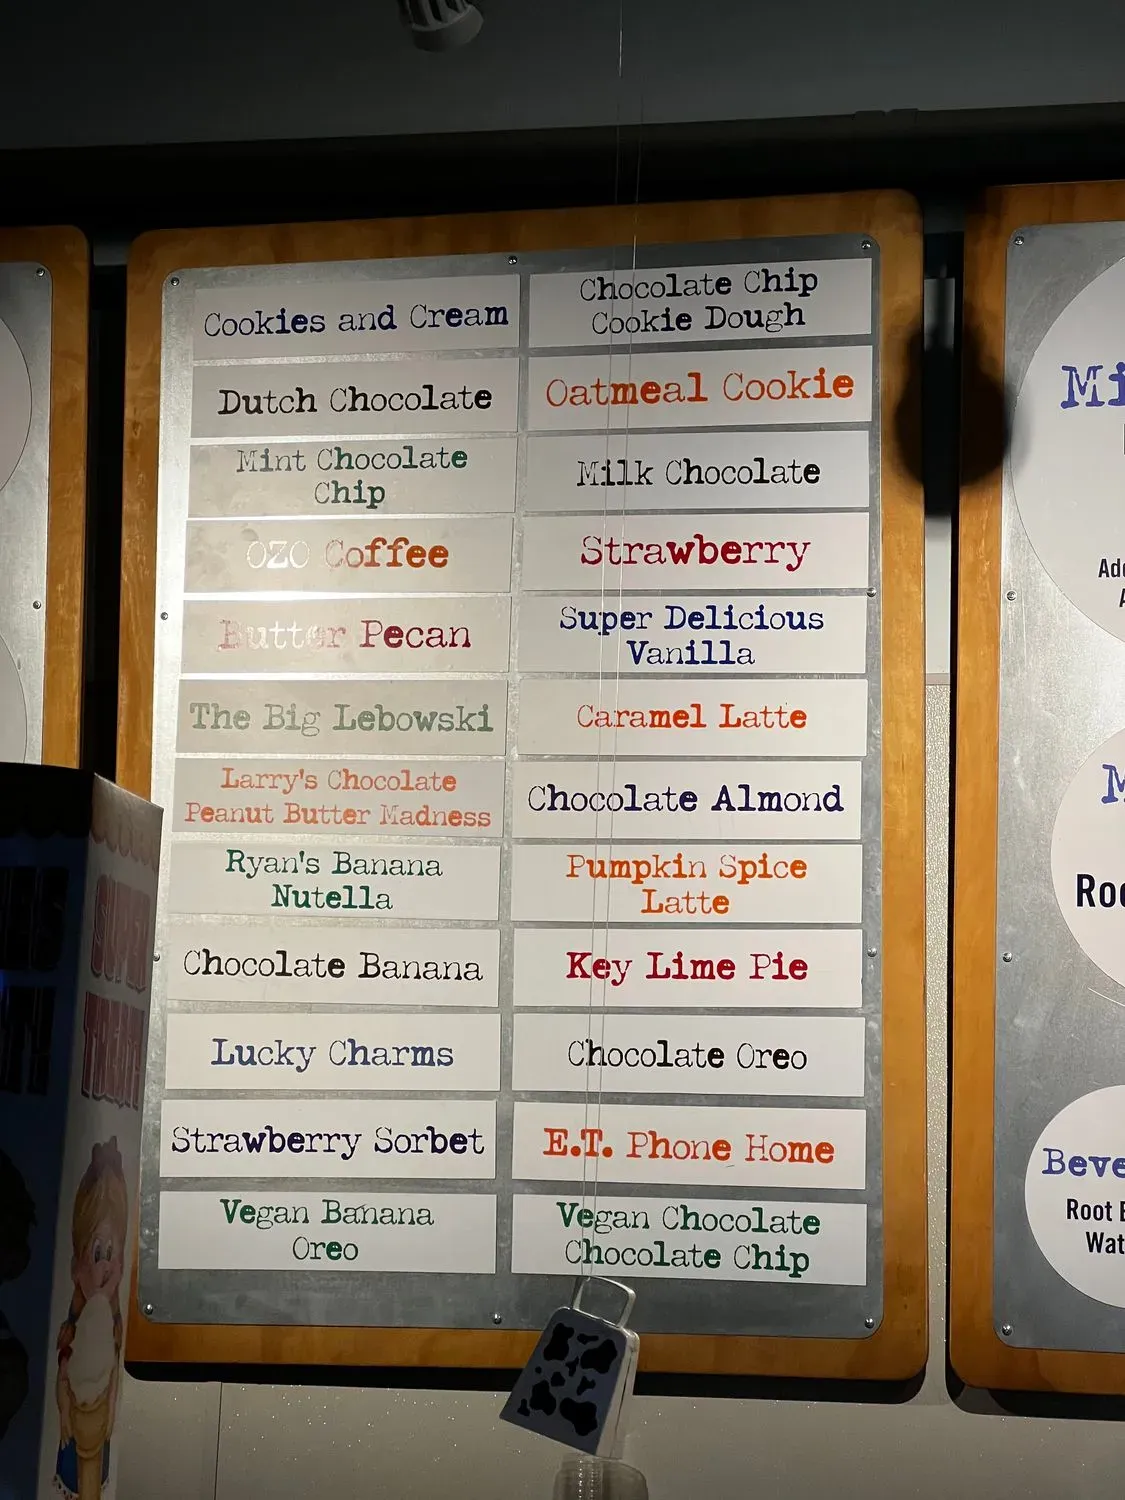 Cookies and Cream
Dutch Chocolate
Mint Chocolate
Chip
OZO Coffee
Butter Pecan
The Big Lebowski
Larry's Chocolate
Peanut Butter Madness
Ryan's Banana
Nutella
Chocolate Banana
Lucky Charms
Strawberry Sorbet
Vegan Banana
Oreo
Chocolate Chip
Cookie Dough
Oatmeal Cookie
Milk Chocolate
Strawberry
Super Delicious
Vanilla
Caramel Latte
Chocolate Almond
Pumpkin Spice
Latte
Key Lime Pie
Chocolate Oreo
E.T. Phone Home
Vegan Chocolate
Chocolate Chip
SUPER
TREAT!
Root
Wat